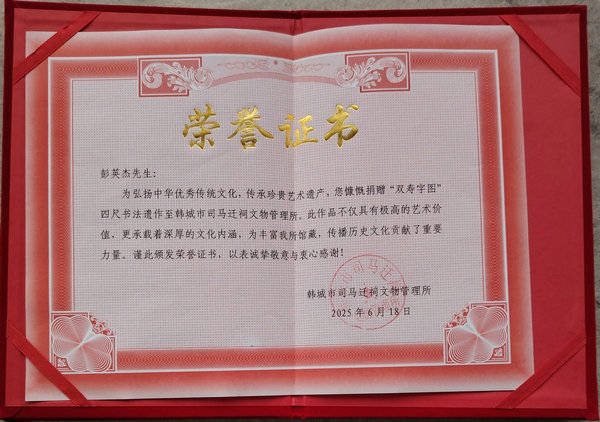 荣誉证书
彭英杰先生：
为弘扬中华优秀传统文化，传承珍贵艺术遗产，您慷慨捐赠“双寿字图”
四尺书法遗作至韩城市司马迁祠文物管理所。此作品不仅具有极高的艺术价
值，更承载着深厚的文化内涵，为丰富我所馆藏，传播历史文化贡献了重要
力量。谨此颁发荣誉证书，以表诚挚敬意与衷心感谢！
韩城市司马迁祠文物管理所
2025年6月18日